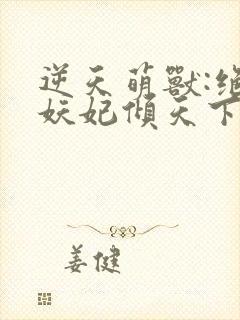 逆天萌獸:絕
妖妃傾天下
姜健